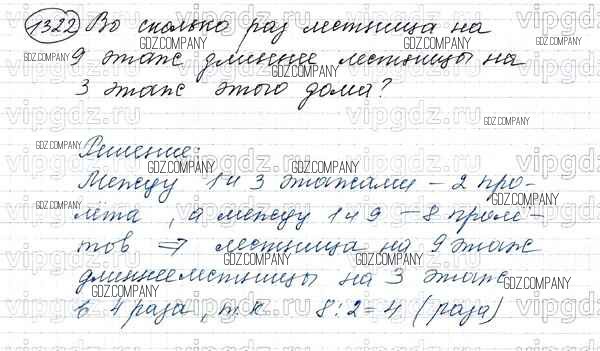 1322 Во сколько раз лестница на
9 этаж длиннее лестницы на
3 этаж этого дома?
Решение:
Между 1 и 3 этажами – 2 про-
лёта, а между 1 и 9 – 8 пролё-
тов ⇒ лестница на 9 этаж
длиннее лестницы на 3 этаж
в 4 раза, т.к 8:2=4 (раза)
vipgdz.ru
GDZ.COMPANY